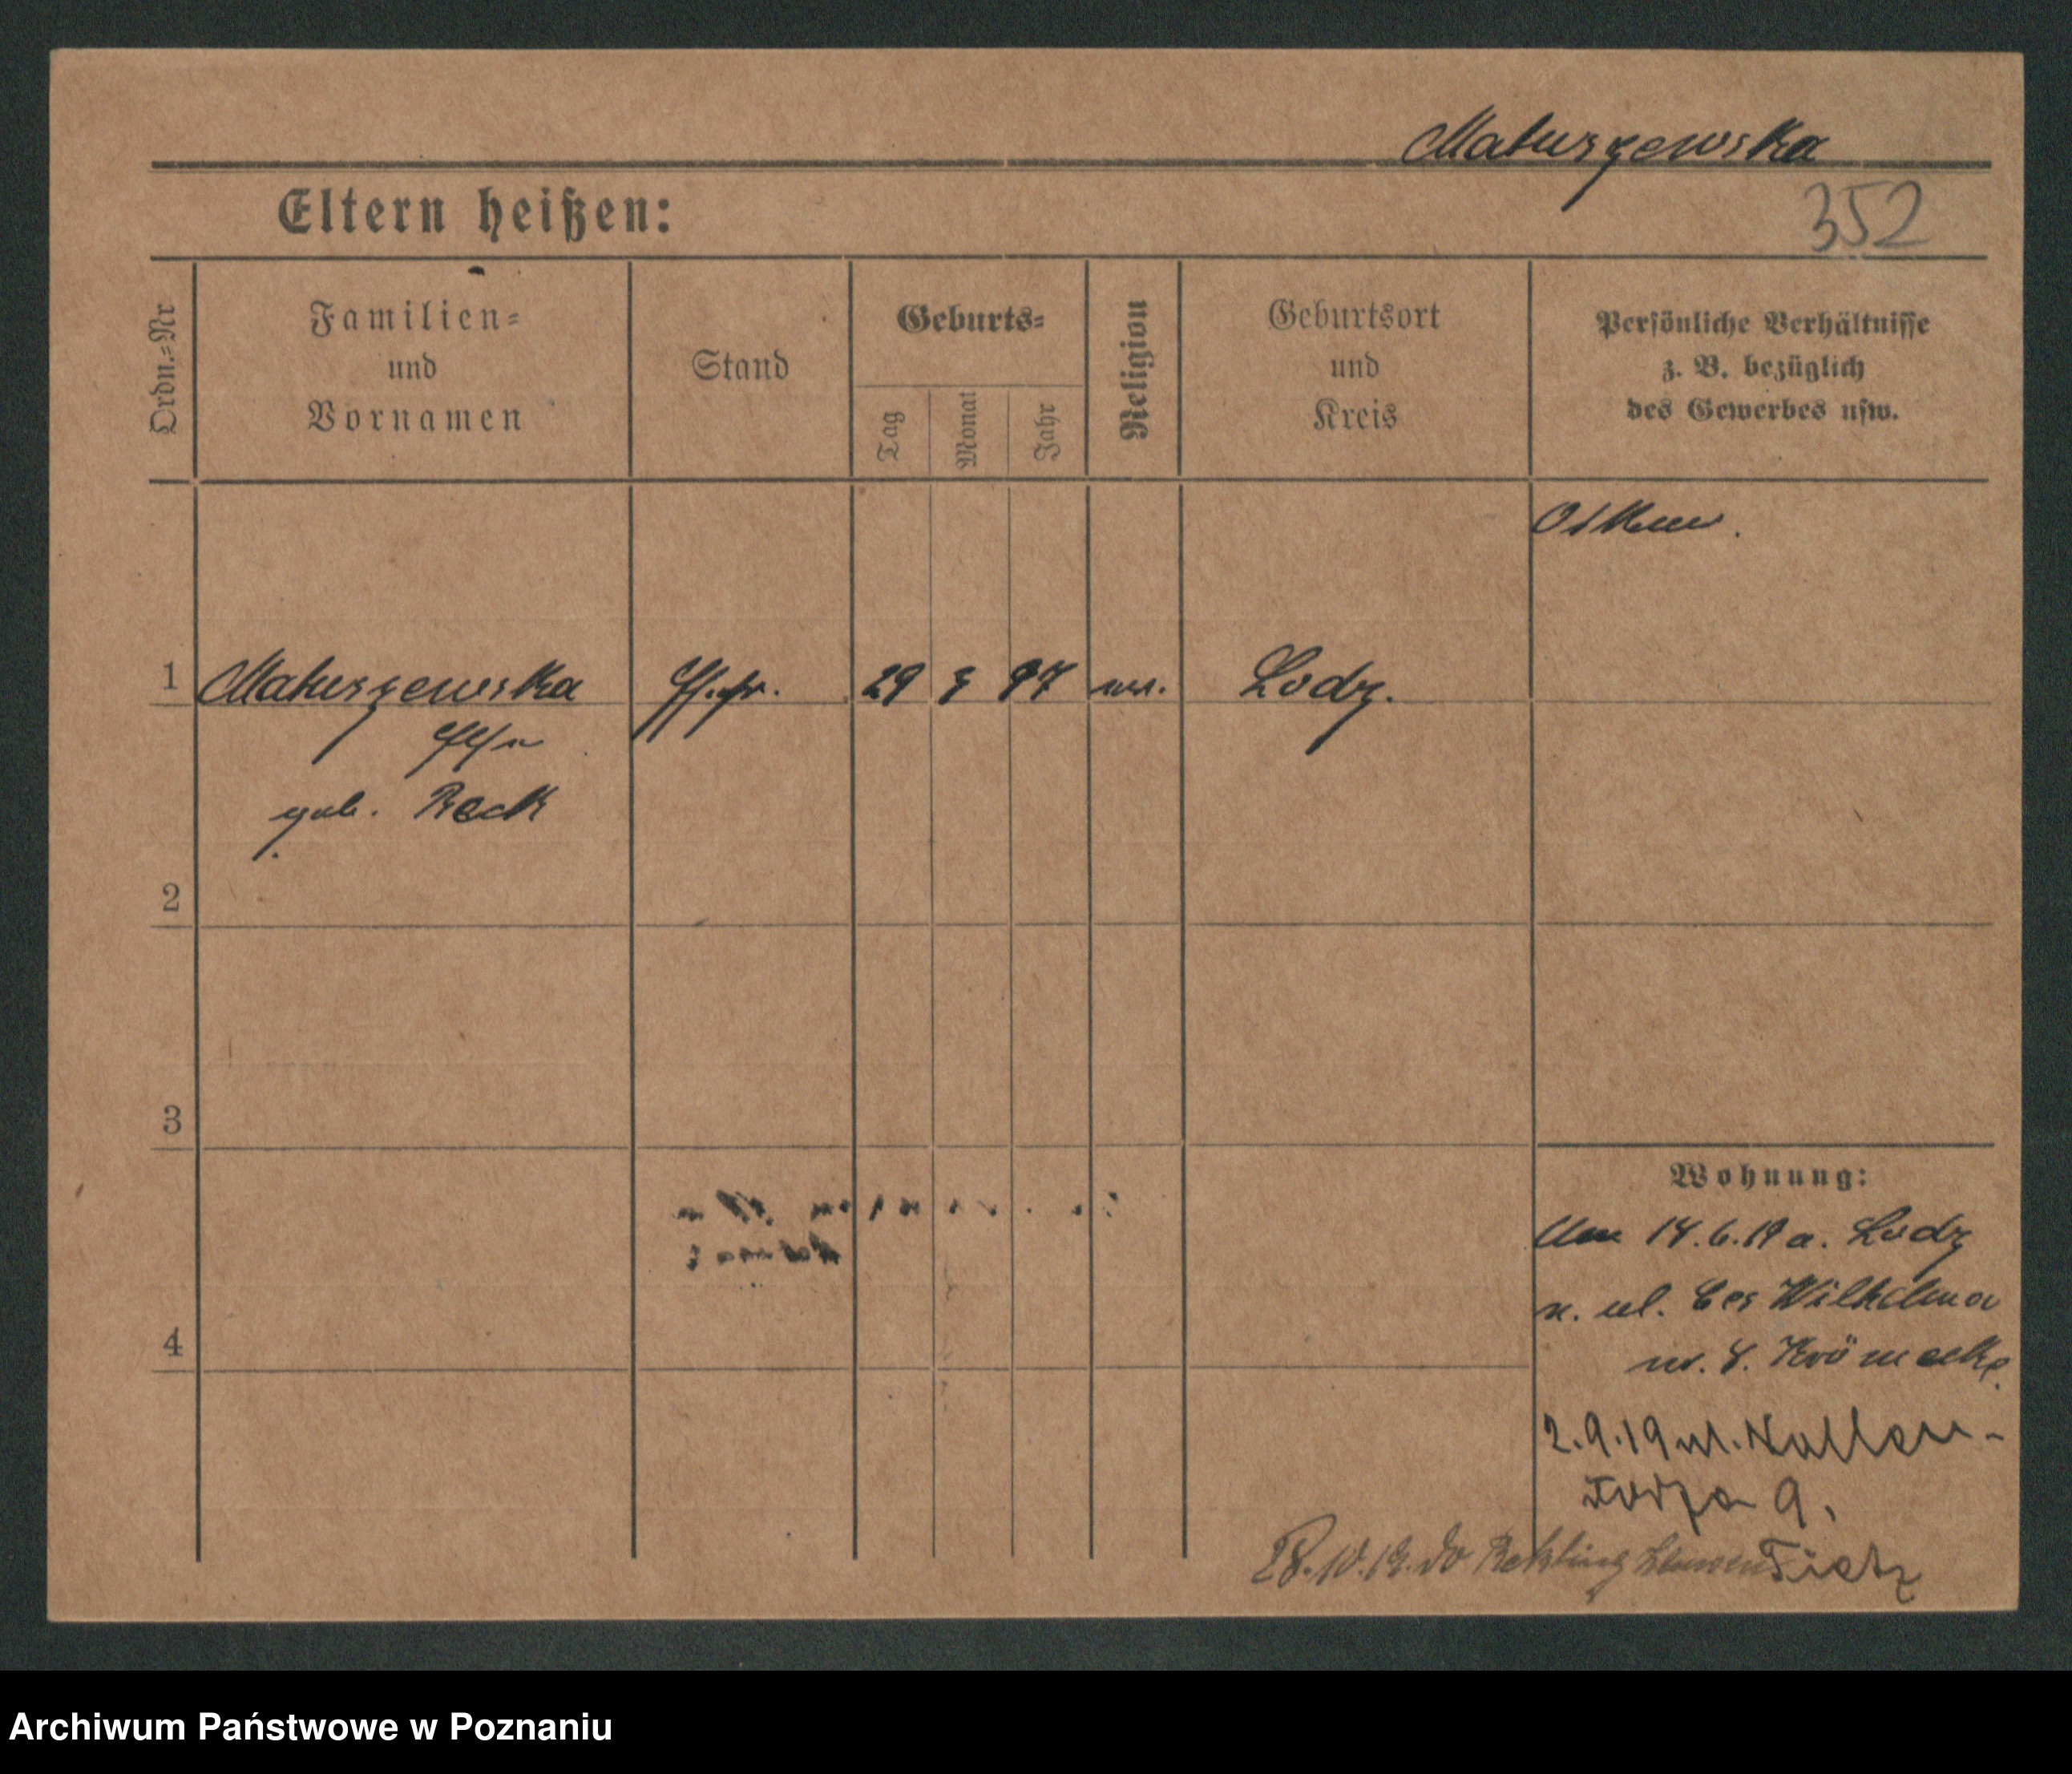 Matuszewska
352
Eltern heißen:
Ordn.=Nr
Familien=
und
Vornamen
Stand
Geburts=
Tag
Monat
Jahr
Religion
Geburtsort
und
Kreis
Persönliche Verhältnisse
z. B. bezüglich
des Gewerbes usw.
1 Matuszewska 29 97 Lodz.
geb. Reck
2
3
Wohnung:
14.6.19 a. Lodz
Wilhelma
4
2.9.19
9.
28.10.19. Tietz
Archiwum Państwowe w Poznaniu